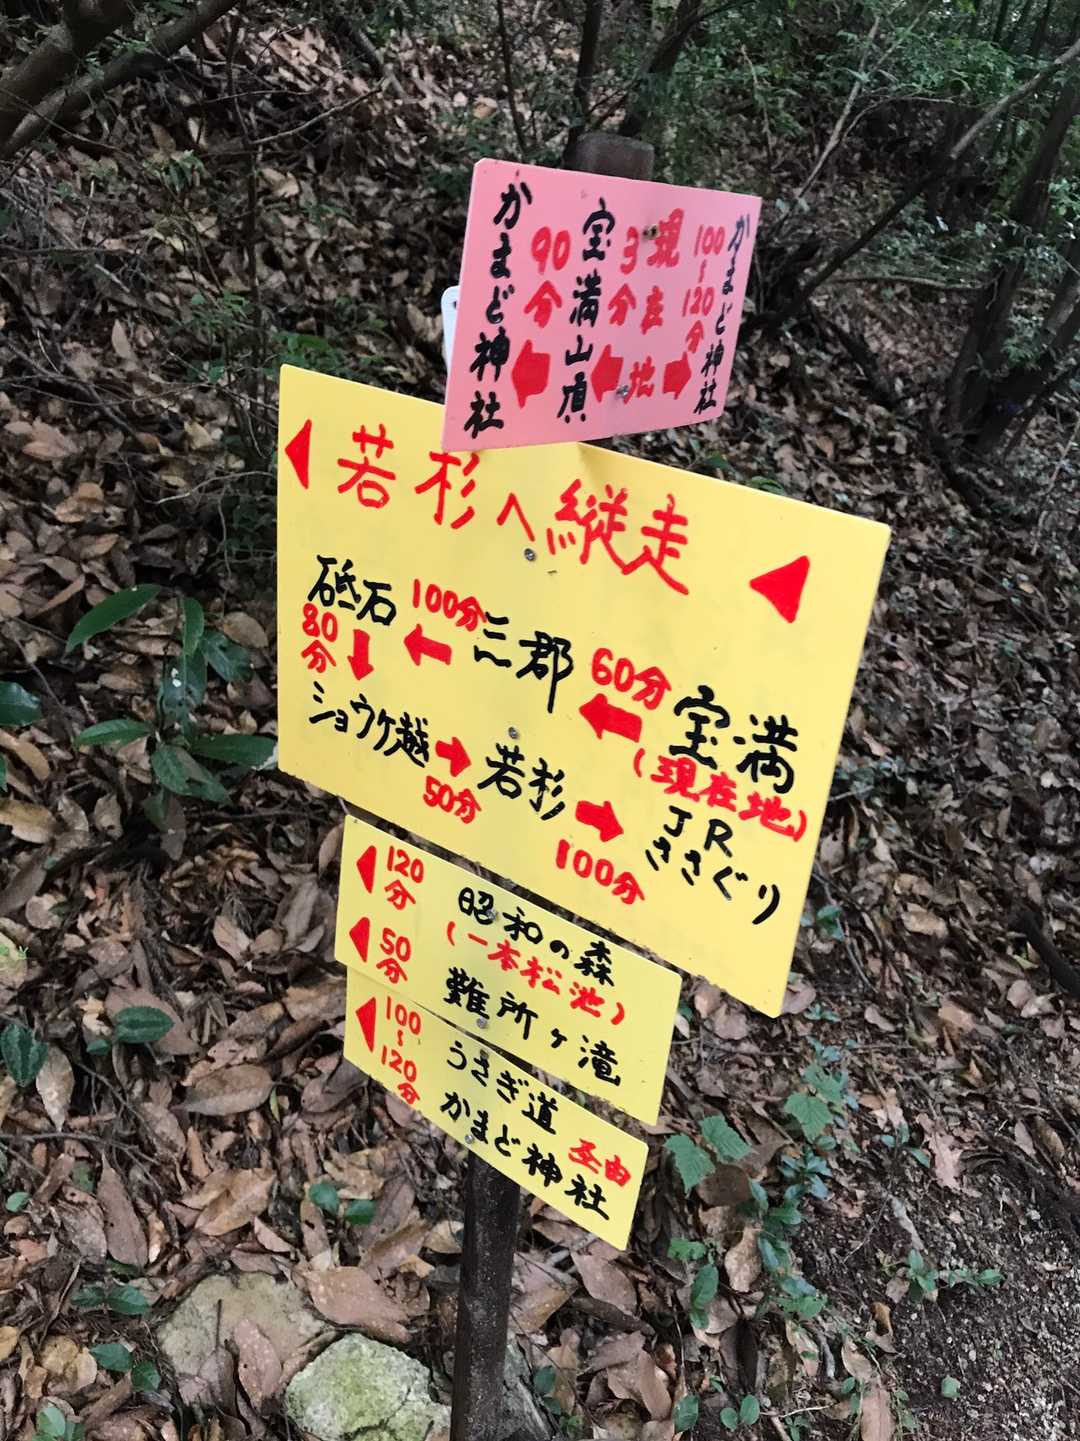 かまど神社
90分
宝満山頂
3分
現在地
100~120分
かまど神社
若杉へ縦走
砥石 100分 三郡 60分 宝満
(現在地)
80分
ショウケ越 50分 若杉 100分 JRささぐり
120分 昭和の森
(一本松池)
50分 難所ヶ滝
100~120分 うさぎ道
かまど神社 至由